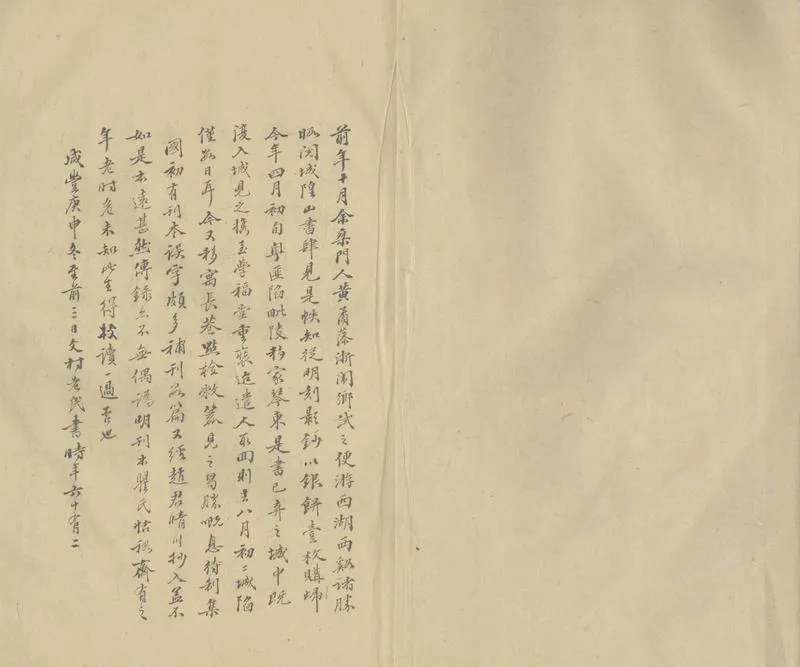 前年十月余栞門人黃蒲落浙闈鄉試之便游西湖兩谿諸勝
旼閱城隍山書肆見是帙知從明刻影鈔以銀餅壹枚購歸
今年四月初旬粵匪陷毗陵移家琴東是書已弃之城中既
復入城見之攜至學福堂重裝迨遣人取回則去八月初二城陷
僅數日耳今又移寓長巷點檢敝簏見之曷勝嘅息待制集
國初有刊本誤字頗多補刊數篇又經趙君晴川抄入益不
如是本遠甚然傳錄亦不無偶譌明刊本瞿氏恬裕齋有之
年老時危未知此生得校讀一過否也
咸豐庚申冬至前三日文村老民書時年六十有二